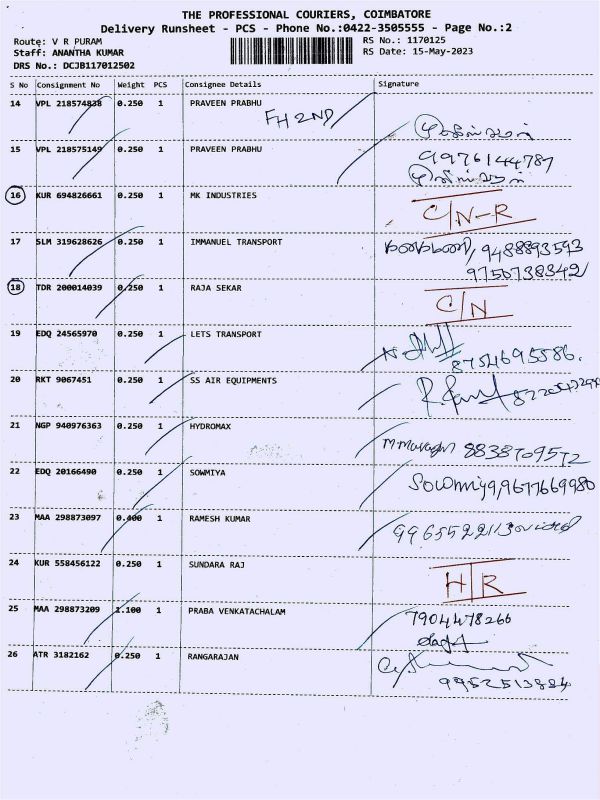 THE PROFESSIONAL COURIERS, COIMBATORE
Delivery Runsheet - PCS - Phone No.:0422-3505555 - Page No.:2
Route: V R PURAM RS No.: 1170125
Staff: ANANTHA KUMAR RS Date: 15-May-2023
DRS No.: DCJB117012502
S No Consignment No Weight PCS Consignee Details Signature
14 VPL 218574838 0.250 1 PRAVEEN PRABHU
FH 2ND
15 VPL 218575149 0.250 1 PRAVEEN PRABHU
9976144787
16 KUR 694826661 0.250 1 MK INDUSTRIES C/N-R
17 SLM 319628626 0.250 1 IMMANUEL TRANSPORT 9488893593
9750738342
18 TDR 200014039 0.250 1 RAJA SEKAR C/N
19 EDQ 24565970 0.250 1 LETS TRANSPORT
8754695586.
20 RKT 9067451 0.250 1 SS AIR EQUIPMENTS
21 NGP 940976363 0.250 1 HYDROMAX
8838709572
22 EDQ 20166490 0.250 1 SOWMIYA Sowmiya, 9677669980
23 MAA 298873097 0.400 1 RAMESH KUMAR
24 KUR 558456122 0.250 1 SUNDARA RAJ H/R
25 MAA 298873209 1.100 1 PRABA VENKATACHALAM 7904478266
26 ATR 3182162 0.250 1 RANGARAJAN
9952513884